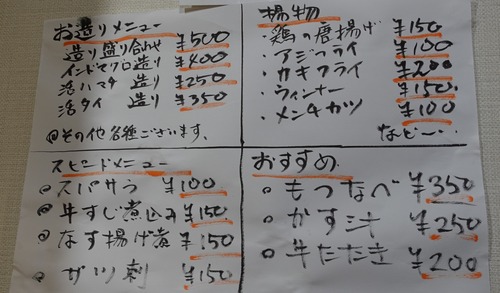 お造りメニュー
造り盛り合わせ ¥500
インドマグロ造り ¥400
活ハマチ 造り ¥250
活タイ 造り ¥350
◎その他各種ございます。
揚物
・鶏の唐揚げ ¥150
・アジフライ ¥100
・カキフライ ¥200
・ウィンナー ¥150
・メンチカツ ¥100
など〜‥
スピードメニュー
◎スパサラ ¥100
◎牛すじ煮込み ¥150
◎なす揚げ煮 ¥150
◎ガツ刺 ¥150
おすすめ
◎もつなべ ¥350
◎かす汁 ¥250
◎牛たたき ¥200